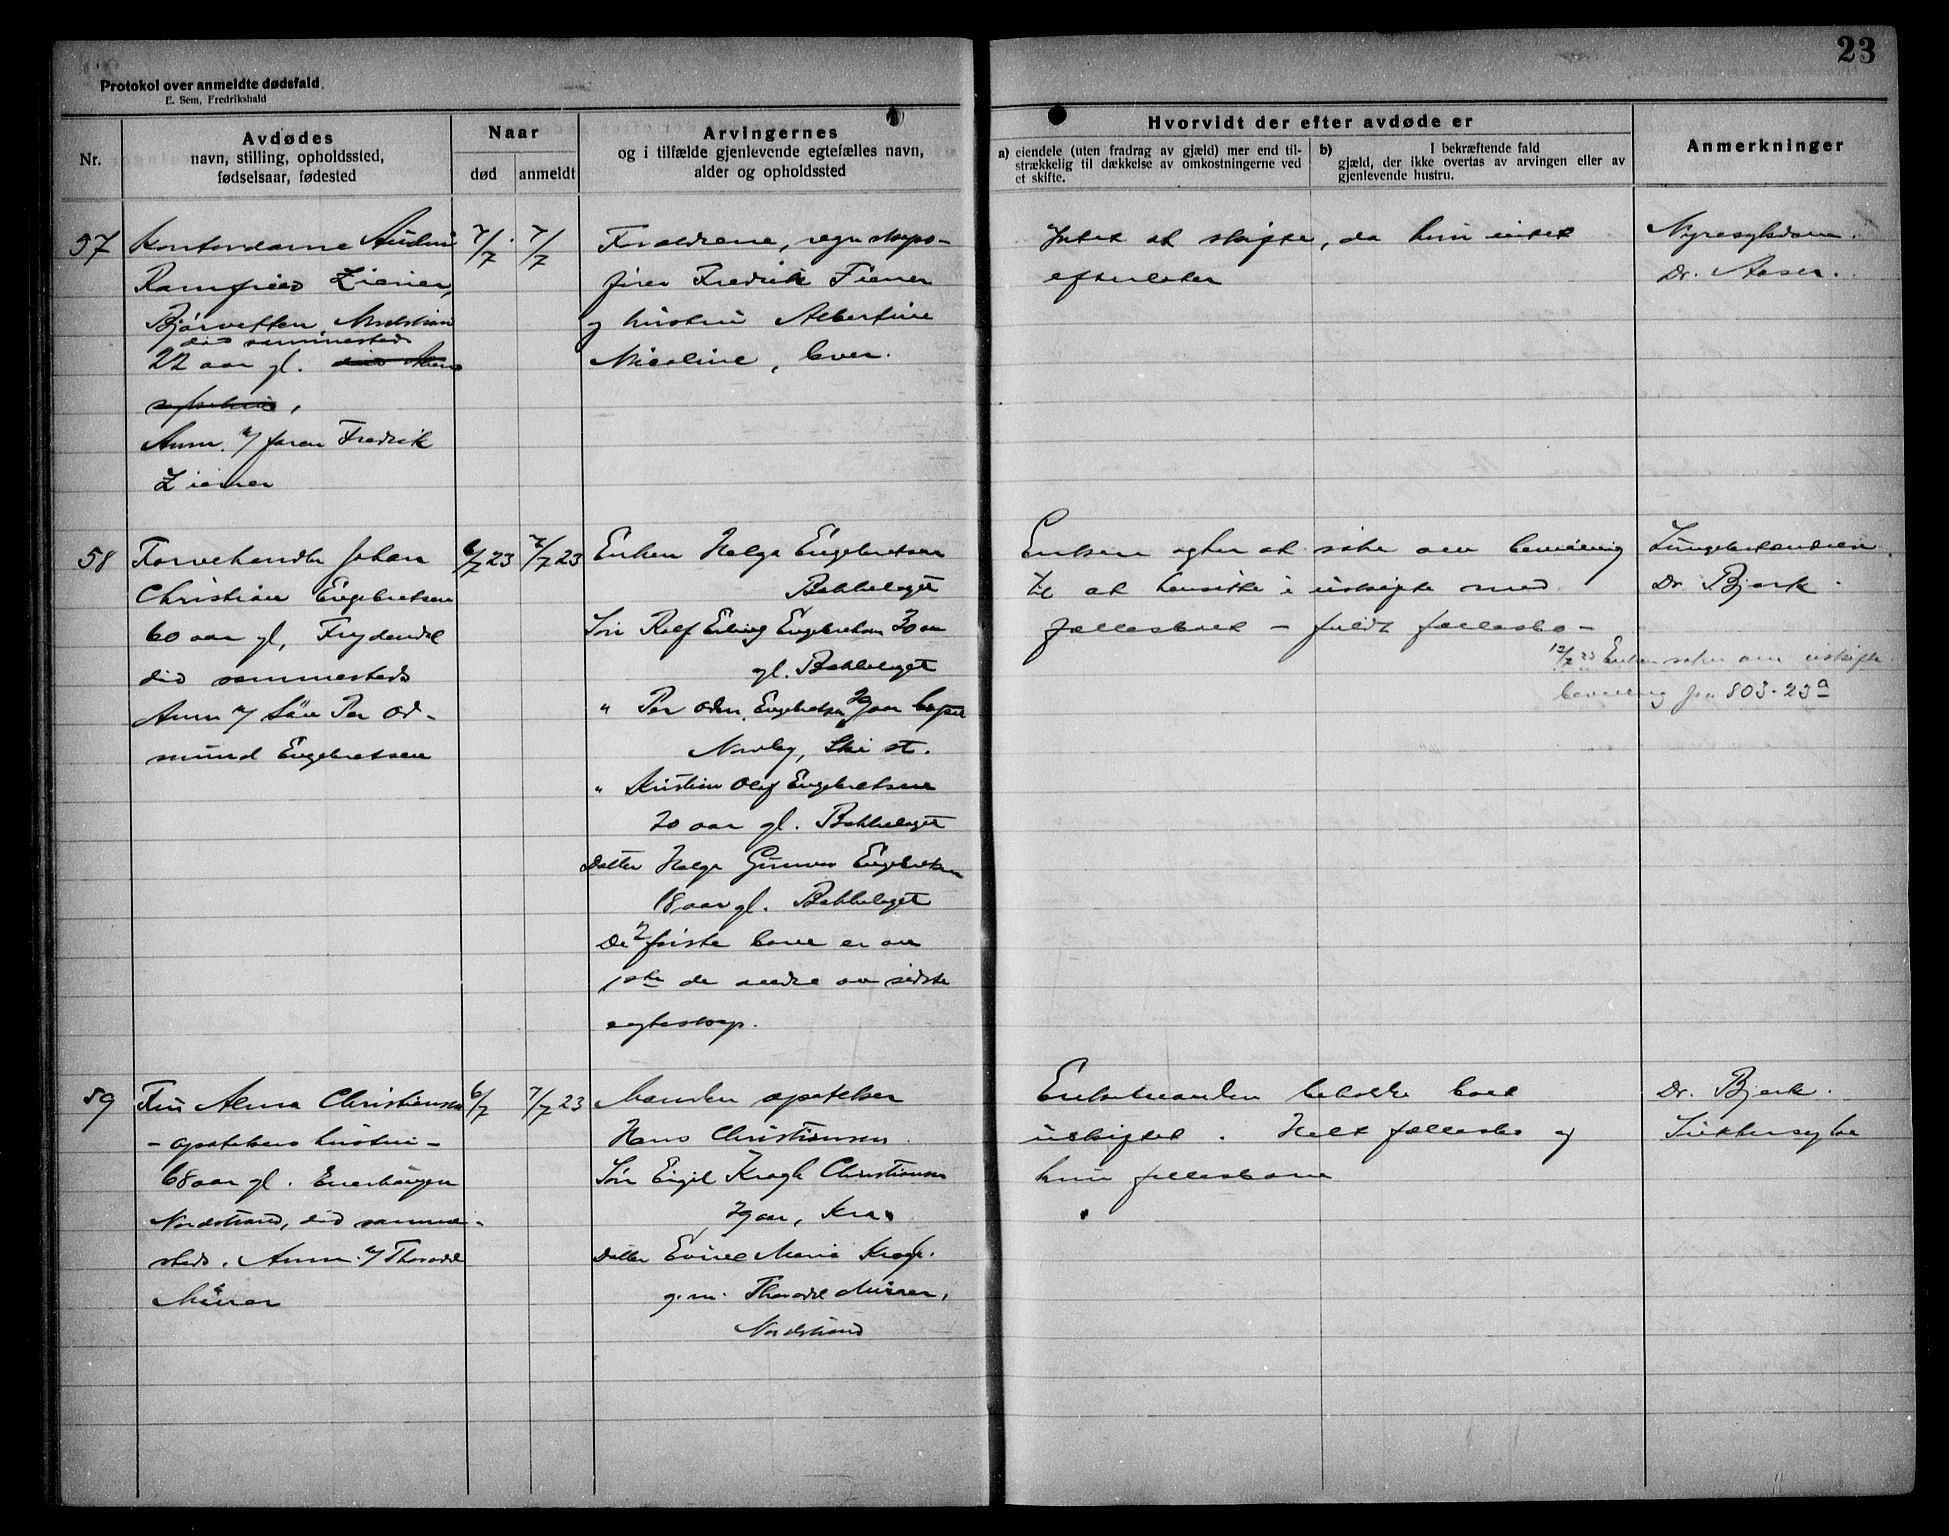 23
Protokol over anmeldte dødsfald.
E. Sem, Fredrikshald
Nr.
Avdødes
navn, stilling, opholdssted,
fødselsaar, fødested
Naar
død
anmeldt
Arvingernes
og i tilfælde gjenlevende egtefælles navn,
alder og opholdssted
Hvorvidt der efter avdøde er
a) eiendele (uten fradrag av gjæld) mer end til-
strækkelig til dækkelse av omkostningerne ved
et skifte.
b) I bekræftende fald
gjæld, der ikke overtas av arvingen eller av
gjenlevende hustru.
Anmerkninger
57
Kontordame
Ziener,
Nordstrand
død sammesteds
22 aar gl.
Anm. v/ faren Fredrik
Ziener
7/7
7/7
Forældrene, regnskaps-
fører Fredrik Ziener
og hustru Albertine
Nicoline, lever.
Intet at skifte, da hun intet
efterlater
Nyresygdom.
Dr. Aaser.
58
Farvehandler Johan
Christian Engebretsen
60 aar gl, Frydendal
død sammesteds
Anm v/ Søn Per Od-
mund Engebretsen
6/7 23
7/7 23
Enken Helga Engebretsen
Bakkelaget
Søn Rolf Erling Engebretsen 30 aar
gl. Bakkelaget
" Per Odm. Engebretsen aar
Ski st.
" Kristian Olaf Engebretsen
20 aar gl. Bakkelaget
Datter Helga Gunvor Engebretsen
18 aar gl. Bakkelaget
De 2 første barn er av
1ste de andre av sidste
egteskap.
Enken agter at søke om bevilling
til at hensitte i uskifte med
fællesboet - fuldt fællesbo -
12/7 23 Enken søker om uskifte
bevilling 803-23a
Lungebetændelse.
Dr. Bjerk.
59
Fru Alma Christiansen
- apotekers hustru -
68 aar gl. Enerhaugen
Nordstrand, død samme-
steds. Anm. v/ Tharald
6/7
7/7 23
Manden apoteker
Hans Christiansen
Søn Eigil Kragh Christiansen
aar, Kra.
Datter Maria Kragh.
g. m. Tharald
Nordstrand
Enkemanden beholder boet
uskiftet. Helt fællesbo og
kun fællesbarn
Dr. Bjerk.
Sukkersyke